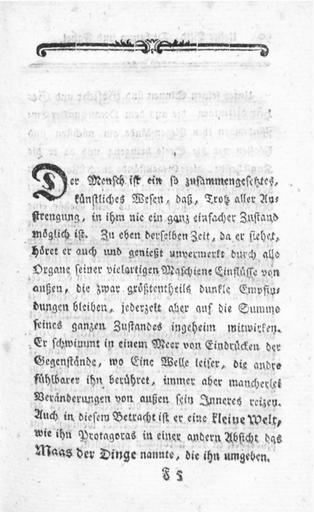 Der Mensch ist ein so zusammengesetztes,
künstliches Wesen, daß, Trotz aller An-
strengung, in ihm nie ein ganz einfacher Zustand
möglich ist. Zu eben derselben Zeit, da er siehet,
höret er auch und genießt unvermerkt durch alle
Organe seiner vielartigen Maschiene Einflüsse von
außen, die zwar größtentheils dunkle Empfin-
dungen bleiben, jederzeit aber auf die Summe
seines ganzen Zustandes ingeheim mitwirken.
Er schwimmt in einem Meer von Eindrücken der
Gegenstände, wo Eine Welle leiser, die andre
fühlbarer ihn berühret, immer aber mancherlei
Veränderungen von außen sein Inneres reizen.
Auch in diesem Betracht ist er eine kleine Welt,
wie ihn Protagoras in einer andern Absicht das
Maas der Dinge nannte, die ihn umgeben.